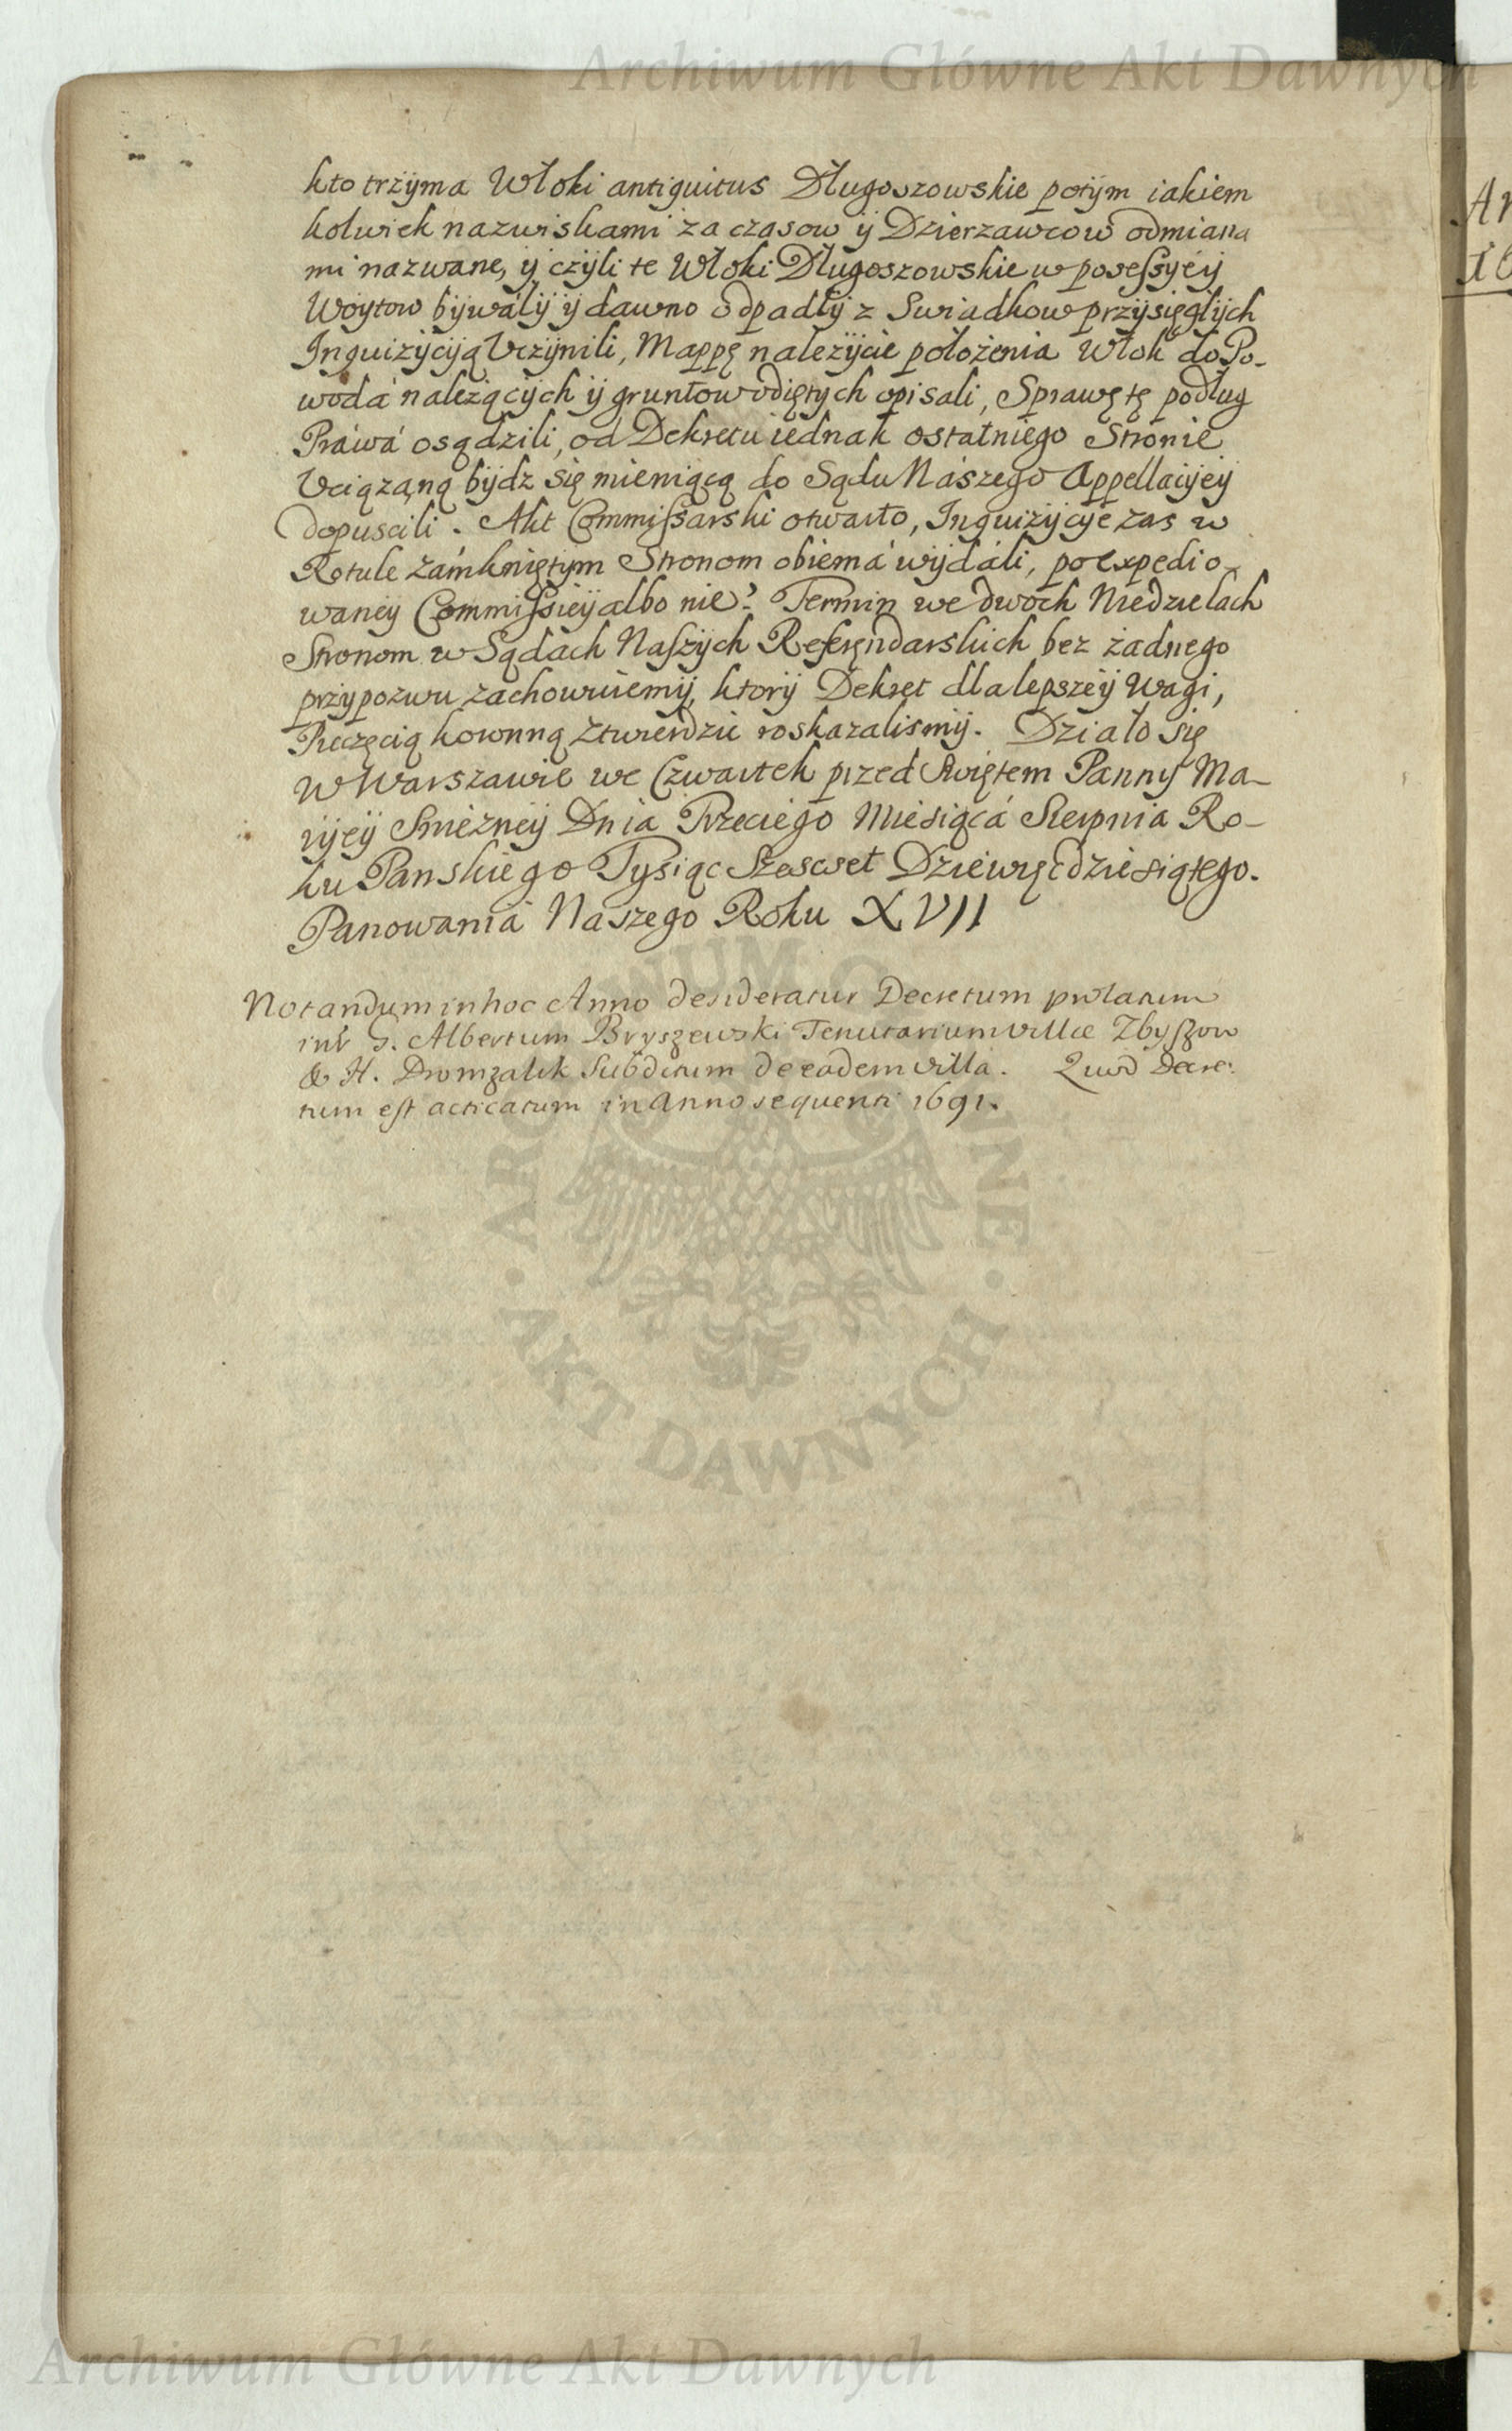 Archiwum Główne Akt Dawnych
kto trzyma Włoki antiquitus Długoszowskie potym iakiem
kolwiek nazwiskami za czasow ÿ Dzierzawcow odmiana
mi nazwane, ÿ czÿli te Włoki Długoszowskie w posessÿeÿ
Woÿtow bÿwałÿ ÿ dawno odpadłÿ z Swiadkow przÿsięgłÿch
Inquizÿcÿą Vczÿnili, Mappę nalezÿcie położenia Włok do Po-
woda należącÿch ÿ gruntow odiętÿch opisali, Sprawę tę podług
Práwá osądzili, od Dekretu iednak ostatniego Stronie
Vciązaną bÿdz się mieniącą do Sądu Naszego Appellacÿeÿ
dopuscili. Akt Commissarski otwarto, Inquizÿcÿe zas w
Rotule zámkniętÿm Stronom obiemá wÿdáli, po expedio-
waneÿ Commissieÿ albo nie? Termin we dwoch Niedzielach
Stronom w Sądach Naszÿch Referendarskich bez żadnego
przÿpozwu zachowuiemÿ, ktorÿ Dekret dla lepszeÿ Wagi,
Pieczęcią koronną ztwierdzic roskazalismÿ. Działo się
W Warszawie we Czwartek przed Swiętem Panny Ma-
rÿeÿ Snieżneÿ Dnia Trzeciego Miesiącá Sierpnia Ro-
ku Panskiego Tysiąc Szescset Dziewięcdziesiątego.
Panowaniá Naszego Roku XVII
Notandum in hoc Anno desideratur Decretum prolatum
int̃ G. Albertum Bryszewski Tenutarium villæ Zbyszow
& H. Dromzalik Subditum de eadem villa. Quod Decre:
tum est acticatum in Anno sequenti 1691.
ARCHIWUM GŁÓWNE · AKT DAWNYCH ·
Archiwum Główne Akt Dawnych